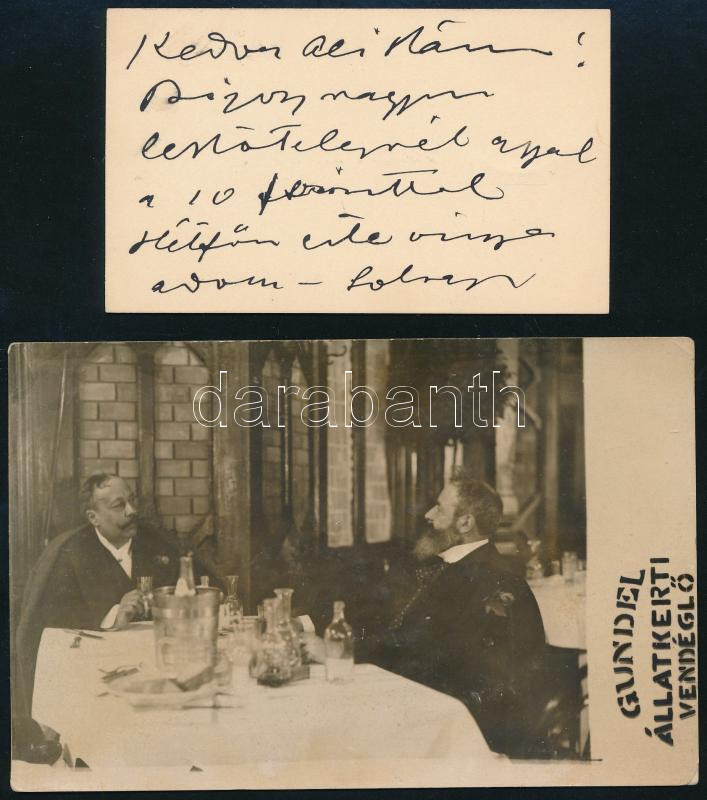 Kedves
Bizony nagyon
leköteleznél azzal
a 10 forinttal
Hétfőn este vissza
adom –
darabanth
GUNDEL
ÁLLATKERTI
VENDÉGLŐ